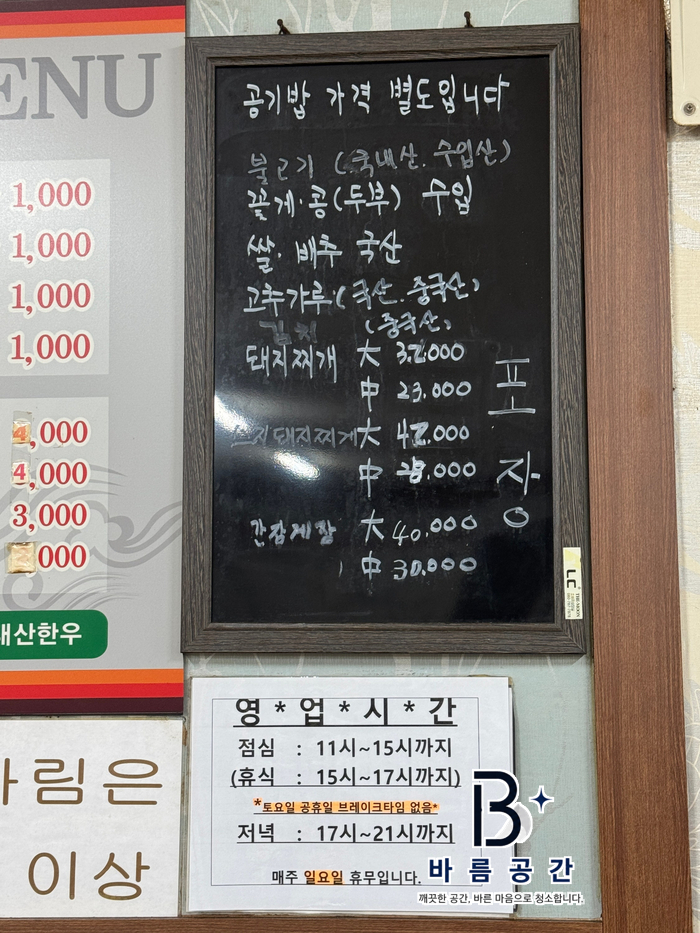 ENU
1,000
1,000
1,000
1,000
4,000
4,000
3,000
,000
내산한우
림은
이상
공기밥 가격 별도입니다
불고기 (국내산. 수입산)
꽃게·콩(두부) 수입
쌀. 배추 국산
고추가루·(국산.중국산)
김치 (중국산)
돼지찌개 大 32.000
中 23.000
돼지찌개 大 42.000
中 28.000
간장게장 大 40.000
中 30.000
포
장
LC
영 * 업 * 시 * 간
점심 : 11시~15시까지
(휴식 : 15시~17시까지)
*토요일 공휴일 브레이크타임 없음*
저녁 : 17시~21시까지
매주 일요일 휴무입니다.
B+
바름공간
깨끗한 공간, 바른 마음으로 청소합니다.